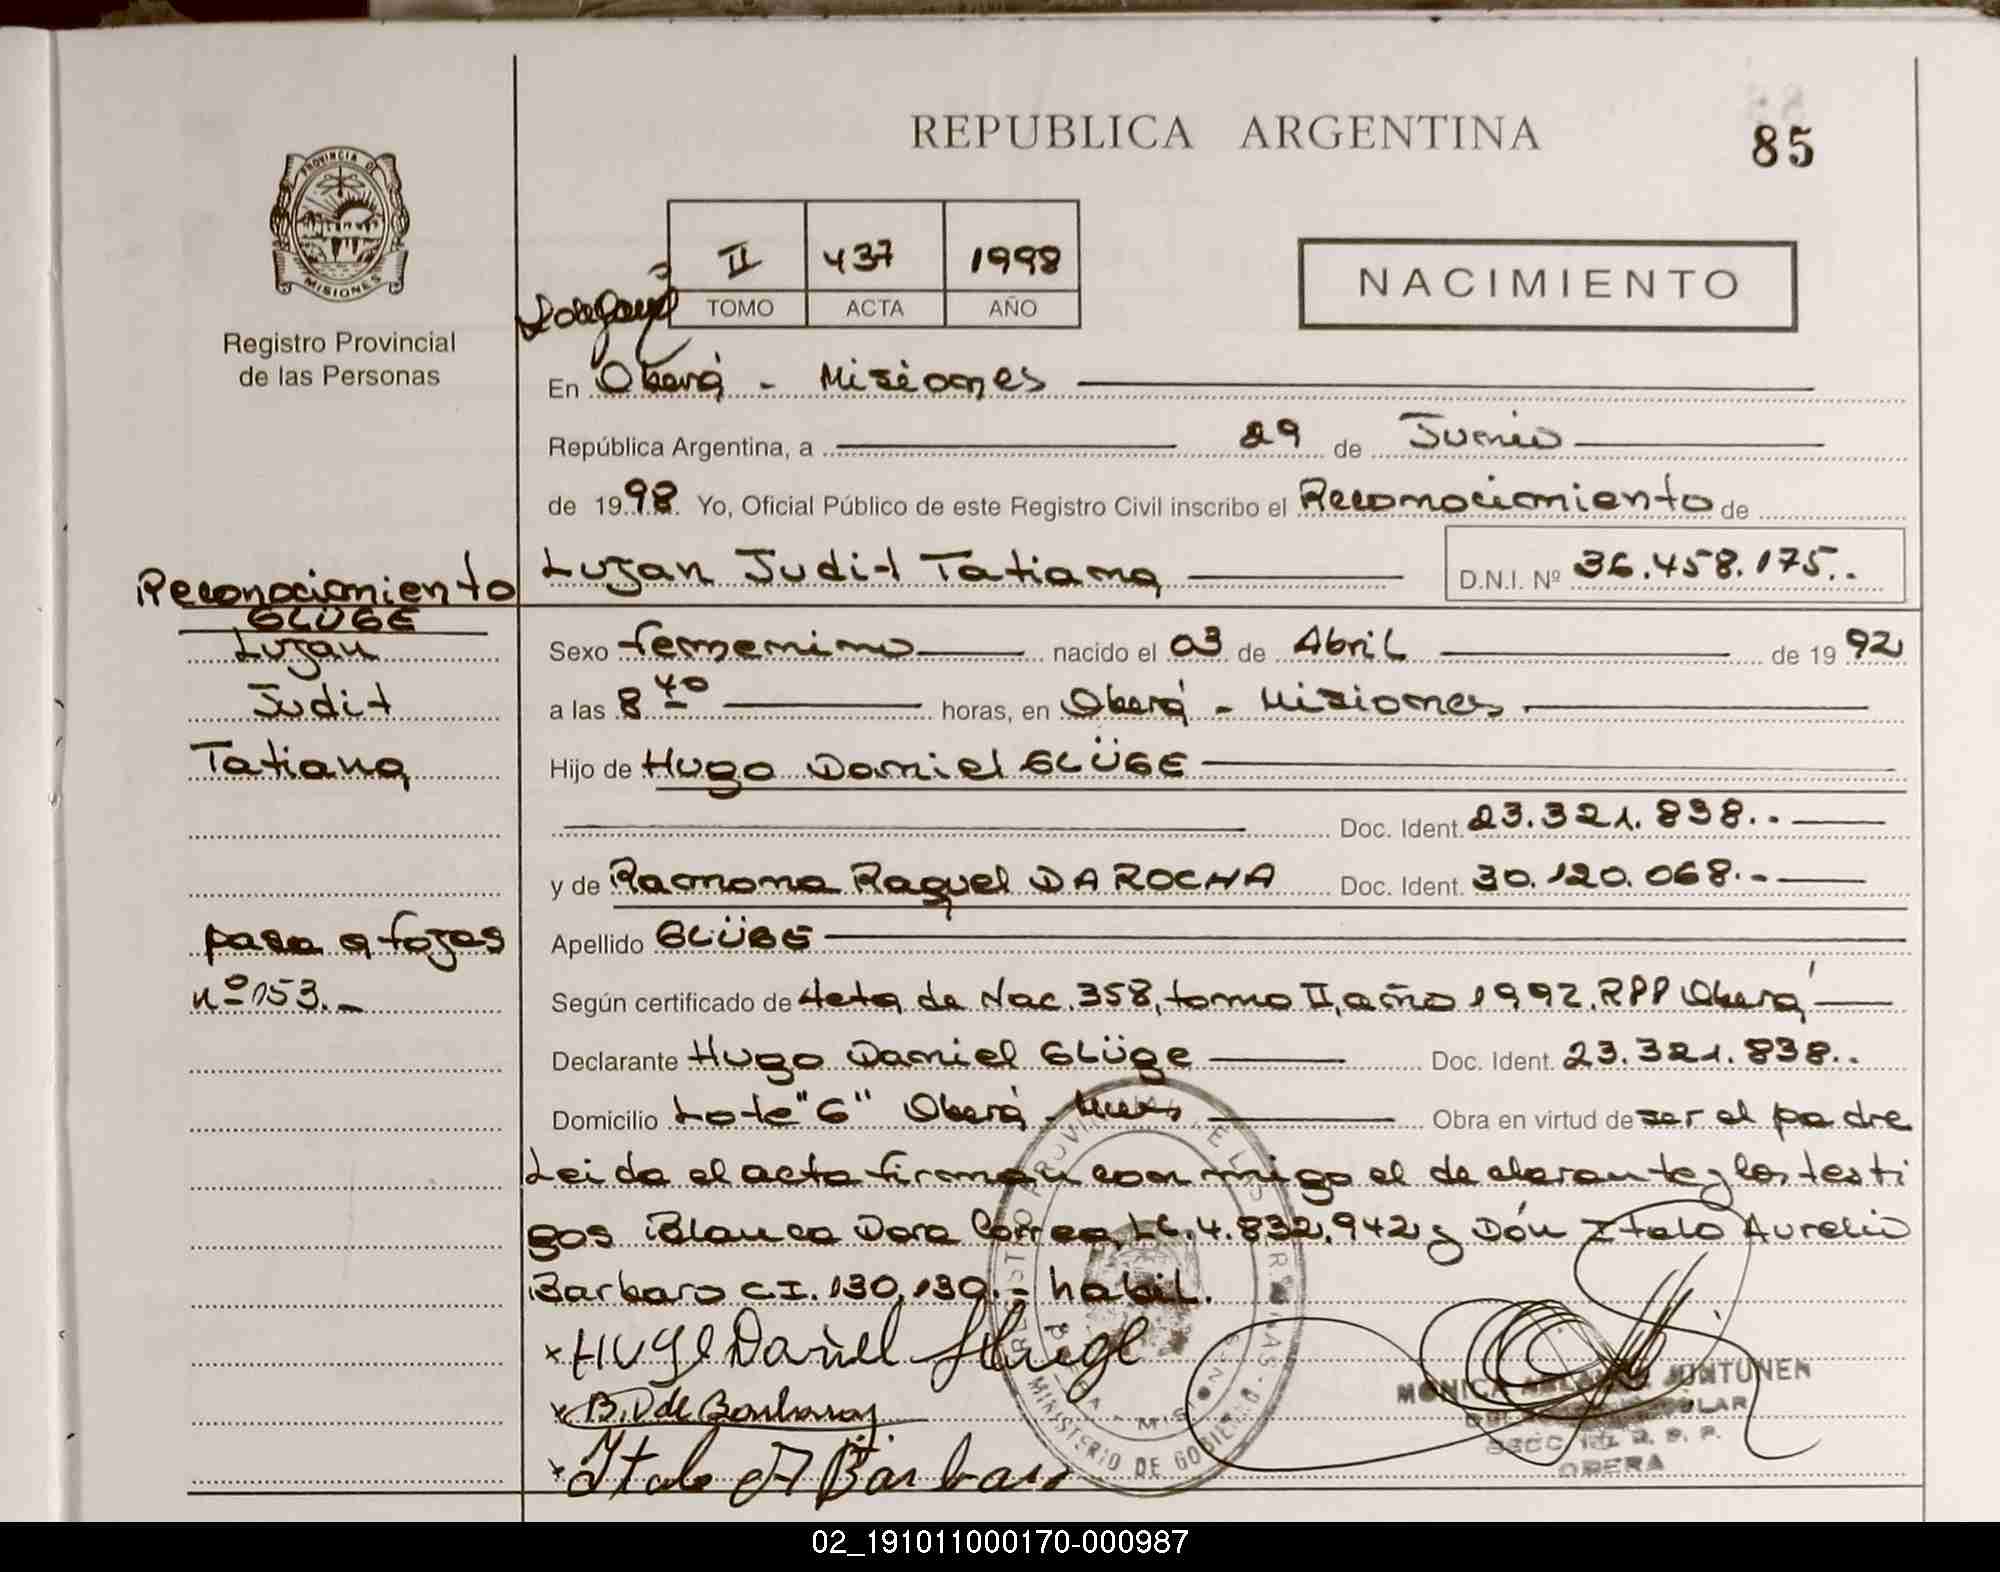 REPUBLICA ARGENTINA
85
PROVINCIA DE
MISIONES
Registro Provincial
de las Personas
II 437 1998
TOMO ACTA AÑO
NACIMIENTO
En Oberá - Misiones
República Argentina, a 29 de Junio
de 1998 Yo, Oficial Público de este Registro Civil inscribo el Reconocimiento de
Lujan Judit Tatiana D.N.I. Nº 36.458.175..
Reconocimiento
GLÜGE
Lujan
Judit
Tatiana
pasa a fojas
nº 153.-
Sexo femenino nacido el 03 de Abril de 1992
a las 8 40 horas, en Oberá - Misiones
Hijo de Hugo Daniel GLÜGE
Doc. Ident. 23.321.838..
y de Ramona Raquel DA ROCHA Doc. Ident. 30.120.068.-
Apellido GLÜGE
Según certificado de Acta de Nac. 358, tomo II, año 1992. RPP Oberá
Declarante Hugo Daniel Glüge Doc. Ident. 23.321.838..
Domicilio Lote "6" Oberá - Mnes Obra en virtud de ser el padre
Leida el acta firman conmigo el declarante y los testi
gos Blanca Dora Correa, LC. 4.832.942 y Dón Italo Aurelio
Barbaro C.I. 130.130.- habil.
x Hugo Daniel Gluge
x B. D de Barbaro
x Italo A Barbaro
MINISTERIO DE GOBIERNO
MONICA JUNTUNEN
TITULAR
SECC. R. P. P.
OBERA
02_191011000170-000987